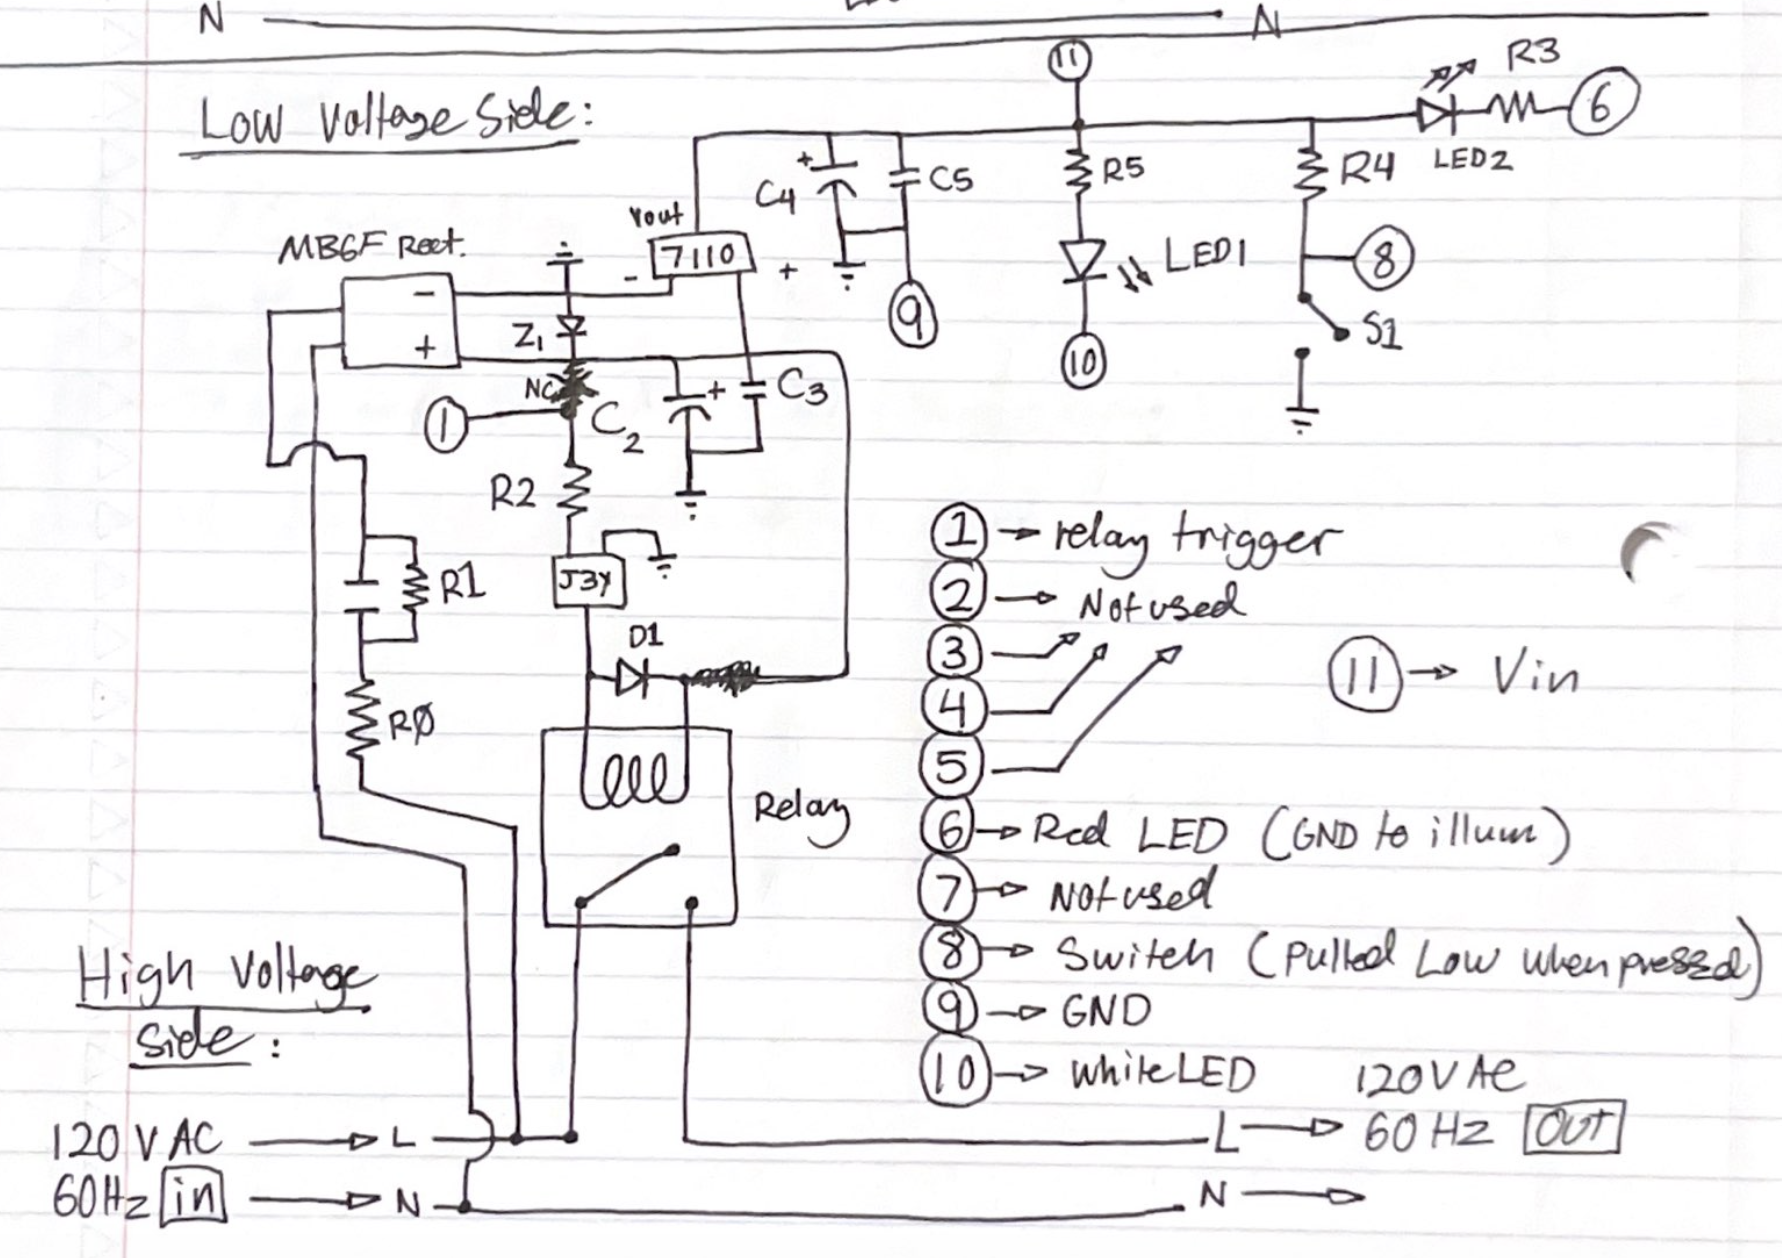 N N
Low Voltage Side:
11
R3
6
LED2
R4
R5
C4 + C5
Vout
7110
- +
MB6F Rect.
-
+
Z1
LED1
8
9
10
S1
NC
1
C2
+
C3
R2
J3Y
R1
D1
RØ
Relay
1 → relay trigger
2 → Not used
3
4
5
11 → Vin
6 → Red LED (GND to illum)
7 → Not used
8 → Switch (Pulled Low when pressed)
9 → GND
10 → White LED
High Voltage
Side:
120 V AC → L
60Hz in → N
120VAC
L → 60 Hz OUT
N →